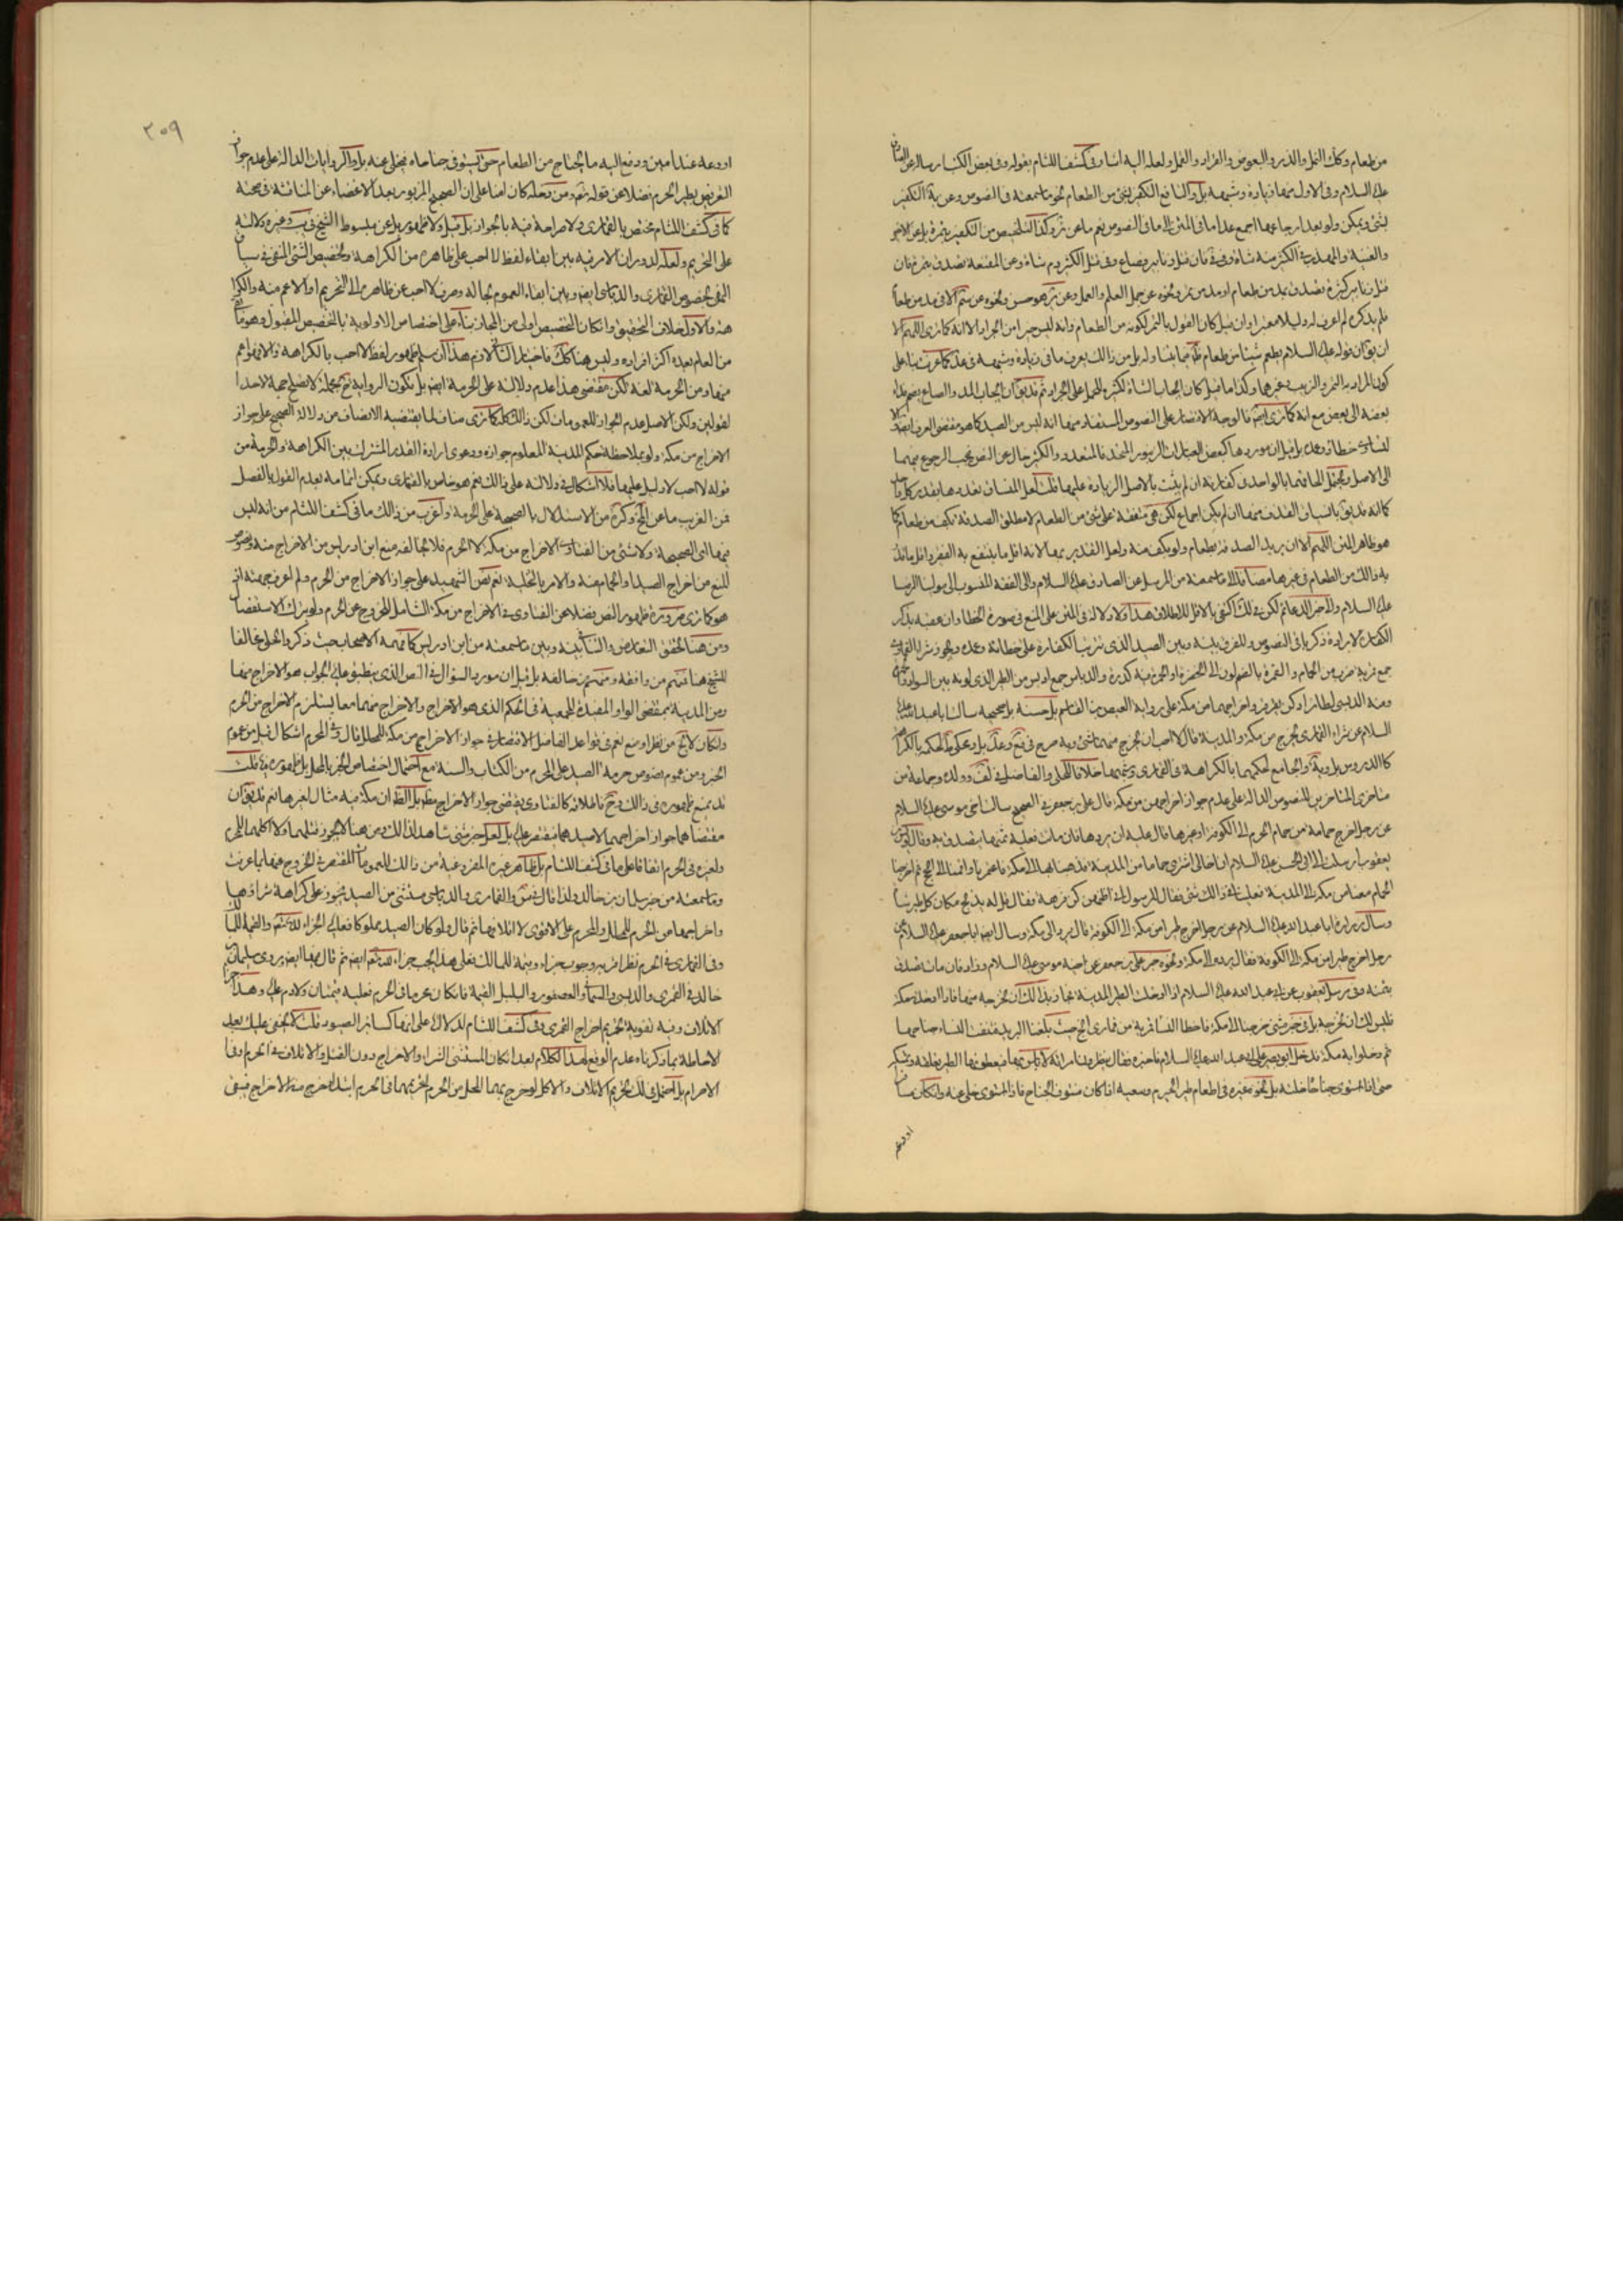 من طعام وكك النمل والذر والبعوض والقراد والقمل ولعله اليه اشار في كشف اللثام بقوله وفي بعض الكتب رسالة عن الصادق
عليه السلام وفي الاول منهما زيادة وشبهه بل والنافع التكفير بشئ من الطعام نحو ما سمعته في النصوص وعن يه التكفير
بشئ ويمكن ولو بعيدا ارجاعها اجمع عدا ما في المتن الى ما في النصوص نعم ما عن وكذا التلخيص من التكفير بتمرة بل عن الاخير
والغنية والمهذب في الكثير منه شاة وفي فان قتل زنابير فصاع وفي قتل الكثير دم شاة وعن المقنعة تصدق بتمرة فان
قتل زنابير كثيرة تصدق بمد من طعام او مد من تمر ونحوه عن جمل العلم والعمل وعن هو حسن ونحوه عن الا في مد من طعام
فلم يذكره لم اعرف له دليلا معتبرا وان قيل كان القول بالتمر لكونه من الطعام وانه ليس خيرا من الجراد الا انه كما ترى اللهم الا
ان يق ان قوله عليه السلام يطعم شيئا من طعام فيما يتناوله بل من ذلك يعرف ما في زيادة وشبهه في عد كما عرفت بناء على
كون المراد به التمر والزبيب وغيرها وكذا ما قيل كان ايجاب الشاة لكثيره للحمل على الجراد ثم قد يق ان ايجاب المد والصاع بضم فداء
بعضه الى بعض مع انه كما ترى ايض فالوجه الاقتصار على النصوص المستفاد منها انه ليس من الصيد كما هو مقتضى العرف ايض والا
لتساوى خطاؤه وعمده بل قيل ان موردها كبعض العبارات الزنبور المتحد فالمتعدد والكثير خال عن النص فيجب الرجوع فيهما
الى الاصل ويحتمل الحاقهما بالواحد في كفارته ان لم يثبت بالاصل الزيادة عليها قلت لعل المنساق تعددها بقدر كل واحد
كما انه قد يق بانسياق القدر منها ان لم يكن اجماع لكن هي متفقة على شئ من الطعام لا مطلق الصدقة تكف من طعام كما
هو ظاهر المتن اللهم الا ان يريد الصدقة بطعام ولو بكف منه ولعل التقدير بها لانه اقل ما ينتفع به الفقير واقل ما
به ذلك من الطعام في غيرها مضافا الى ما سمعته من المرسل عن الصادق عليه السلام والى الفقه المنسوب الى مولينا الرضا
عليه السلام والامر الدعائم لكن في لك اكتفى بالاقل للاطلاق هذا ولا دلالة في المتن على المنع في صورة الخطا وان عقبه بذكر
الكفارة لارادة ذكر ما في النصوص والفرق بينه وبين الصيد الذي تترتب الكفارة على خطائه وعمده ويجوز شراء القماري
جمع قمرية ضرب من الحمام و القمرة بالضم لون الى الخضرة او الحمرة فيه كدرة والدباسي جمع ادبس من الطير الذي لونه بين السواد والحمرة
ومنه الدبسي لطائر ادكن يقرقر واخراجهما من مكة على رواية العيص بن القاسم بل حسنة بل صحيحة سالت ابا عبد الله عليه
السلام عن شراء القماري يخرج من مكة والمدينة قال لا احب ان يخرج منهما شئ وبه صرح في فع وعد بل ومحكي ط لحكمه بالكراهة
كالدروس بل ويه والجامع لحكمهما بالكراهة في القماري وشبهها خلافا للحلي والفاضل في لف وولده وجماعة من
متاخري المتاخرين للنصوص الدالة على عدم جواز اخراجهن من مكة قال علي بن جعفر في الصحيح سالت اخي موسى عليه السلام
عن رجل اخرج حمامة من حمام الحرم الى الكوفة او غيرها قال عليه ان يردها فان ماتت فعليه ثمنها يتصدق به وقال يونس بن
يعقوب ارسلت الى ابي الحسن عليه السلام ان اخا لي اشترى حماما من المدينة فذهبنا بها الى مكة فاعتمرنا واقمنا الى الحج ثم اخرجنا
الحمام معنا من مكة الى المدينة فعلينا في ذلك شئ فقال للرسول انى اظنهن كن فرهة فقال قل له يذبح مكان كل طير شاة
وسال زرارة ابا عبد الله عليه السلام عن رجل اخرج طيرا من مكة الى الكوفة قال يرد الى مكة وسال ايض ابا جعفر عليه السلام عن
رجل اخرج طيرا من مكة الى الكوفة فقال يرده الى مكة ونحوه خبر علي بن جعفر عن اخيه موسى عليه السلام وزاد فان مات تصدق
بثمنه وفي مرسل يعقوب عن ابي عبد الله عليه السلام اذا ادخلت الطير المدينة فجايز لك ان تخرجه منها فاذا ادخلت مكة
فليس لك ان تخرجه بل في خبر مثنى خرجنا الى مكة فاصطاد النساء قمرية من قماري الج حيث بلغنا البريد فنتف النساء جناحيها
ثم دخلوا به مكة فدخل ابو بصير على ابي عبد الله عليه السلام فاخبره فقال ينظرون امراة لا باس بها فيعطونها الطير تعلفه وتمسكه
حتى اذا استوى جناحاه خلته بل نحوه غيره في اطعام طير الحرم وسعيه اذا كان منتوف الجناح فاذا استوى خلى عنه وان كان مسافرا
اودعه
٢٠٩
اودعه عند امين ودفع اليه ما يحتاج من الطعام حتى يستوي جناحاه فيخلي عنه بل والروايات الدالة على عدم جواز
التعرض لطير الحرم فضلا عن قوله تعم ومن دخله كان امنا على ان الصحيح المزبور بعد الاغضاء عن المناقشة في صحته
كما في كشف اللثام مختص بالقماري ولا صراحة فيه بالجواز بل قيل ولا ظهور بل عن مبسوط الشيخ في يب وغيره دلالته
على التحريم ولعله لدوران الامر فيه بين ابقاء لفظ لا احب على ظاهره من الكراهة وتخصيص الشئ المنفي في سياق
النفي بخصوص القماري والدباسي ايض وبين ابقاء العموم بحاله وصرف لا احب عن ظاهره الى التحريم او الاعم منه والكراهة
هذه والاول خلاف التحقيق وان كان التخصيص اولى من المجاز بناء على اختصاص الاولوية بالتخصيص المقبول وهو ما بقي
من العام بعده اكثر افراده وليس هنا كك فاختيار الثاني لازم هذا ان سلم ظهور لفظ لا احب بالكراهة والا فهو اعم
منها ومن الحرمة لغة لكن مقتضى هذا عدم دلالة على الحرمة ايض بل تكون الرواية مجملة لا تصلح حجة لاحد
القولين ولكن الاصل عدم الجواز للعمومات لكن ذلك كله كما ترى مناف لما يقتضيه الانصاف من دلالة الصحيح على جواز
الاخراج من مكة ولو بملاحظة حكم المدينة المعلوم جوازه ودعوى ارادة القدر المشترك بين الكراهة والحرمة من
قوله لا احب لا دليل عليها فلا اشكال في دلالته على ذلك نعم هو خاص بالقماري ويمكن اتمامه بعدم القول بالفصل
فمن الغريب ما عن الحج وكره من الاستدلال بالصحيحة على الحرمة واغرب من ذلك ما في كشف اللثام من انه ليس
فيها اي الصحيحة ولا شئ من الفتاوى الاخراج من مكة لا الحرم فلا مخالفة منع ابن ادريس من الاخراج منه ونصوص
المنع من اخراج الصيد او الحمام منه والامر بالتخلية نعم نص الشهيد على جواز الاخراج من الحرم ولم اعرف جهته اذ
هو كما ترى ضرورة ظهور النص فضلا عن الفتاوى في الاخراج من مكة الشامل للخروج عن الحرم ولو بترك الاستفصال
ومن هنا تحقق التعارض والتنافي بينه وبين ما سمعته من ابن ادريس كما فهمه الاصحاب حيث ذكروا الحلي مخالفا
للشيخ هنا فمنهم من وافقه ومنهم من خالفه بل قيل ان مورد السؤال في النص الذي ينطبق عليه الجواب هو الاخراج منها
ومن المدينة بمقتضى الواو المفيدة للجمعية في الحكم الذي هو الاخراج والاخراج منهما معا يستلزم الاخراج من الحرم
وان كان لا يخ من نظر او منع نعم في قواعد الفاضل الاقتصار في جواز الاخراج من مكة للمحل قال وفي المحرم اشكال قيل من عموم
الخبر ومن عموم نصوص حرمة الصيد على المحرم من الكتاب والسنة مع احتمال اختصاص الخبر بالمحل بل ظهوره فيه قلت
قد يمنع ظهوره في ذلك وح فاطلاقه كالفتاوى يقتضي جواز الاخراج مطلقا بل الظ ان مكة فيه مثال لغيرها نعم قد يق ان
مقتضاهما جواز اخراجهما لا صيدهما فيقتصر عليه بل لعل خبر مثنى شاهد لذلك ومن هنا لا يجوز قتلهما ولا اكلهما للمحرم
ولغيره في الحرم اتفاقا على ما في كشف اللثام بل ظاهر غيره المفروغية من ذلك للعمومات المقتصر في الخروج عنها بما عرفت
وما سمعته من خبر سليمان بن خالد ولذا قال في س والقماري والدباسي مستثنى من الصيد يجوز على كراهة شراؤها
واخراجها من الحرم للمحل والمحرم على الاقوى لا اتلافها ثم قال ولو كان الصيد مملوكا فعليه الجزاء لله تعم والقيمة للمالك
وفي القماري في الحرم نظر اقربه وجوب جزاء وقيمة للمالك فعلى هذا يجب جزاء لله تعم ايض ثم قال فيها ايض وروى سليمان بن
خالد في القمري والدبسي والسماني والعصفور والبلبل القيمة فان كان محرما في الحرم فعليه قيمتان ولا دم عليه وهذا جزاء
الاتلاف وفيه تقوية تحريم اخراج القمري وفي كشف اللثام لدلالته على انها كسائر الصيود قلت لا يخفى عليك بعد
الاحاطة بما ذكرناه عدم الوقع لهذا الكلام بعد ان كان المستثنى الشراء والاخراج دون القتل والاتلاف في الحرم وفي
الاحرام بل احتمل في لك تحريم الاتلاف والاكل لو خرج بهما المحل من الحرم لتحريمهما في الحرم ابتداء خرج منه الاخراج فيبقى